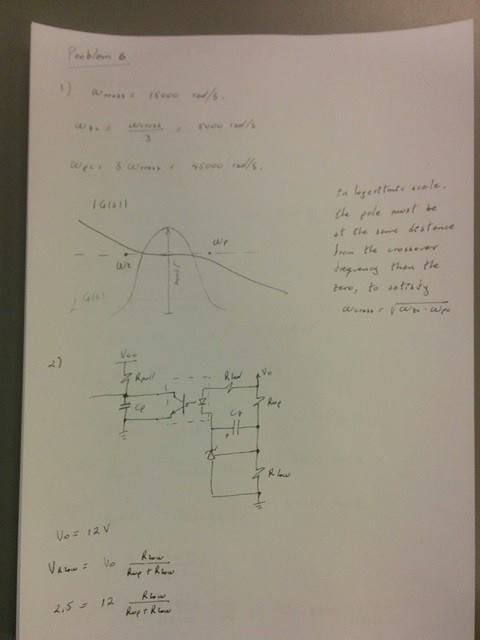 Problem 6
1) ωcross = 15000 rad/s.
ωzc = ωcross / 3 = 5000 rad/s
ωpc = 3 ωcross = 45000 rad/s.
|G(s)|
ωz
ωp
boost
∠G(s)
in logaritmic scale.
the pole must be
at the same distance
from the crossover
frequency than the
zero, to satisfy
ωcross = √ωzc · ωpc
2)
Vcc
Rpull
Cp
Rled
Vo
Rup
Cz
Rlow
Vo = 12 V
VRlow = Vo Rlow / Rup + Rlow
2,5 = 12 Rlow / Rup + Rlow